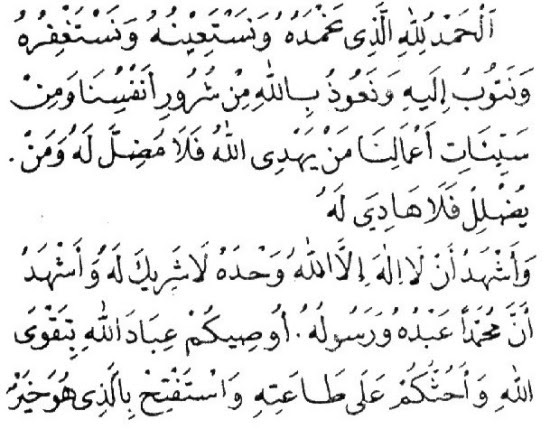 اَلْحَمْدُ لِلّٰهِ الَّذِى نَحْمَدُهُ وَنَسْتَعِيْنُهُ وَنَسْتَغْفِرُهُ
وَنَتُوْبُ اِلَيْهِ وَنَعُوْذُ بِاللّٰهِ مِنْ شُرُوْرِ اَنْفُسِنَا وَمِنْ
سَيِّئَاتِ اَعْمَالِنَا مَنْ يَهْدِى اللّٰهُ فَلَا مُضِلَّ لَهُ وَمَنْ .
يُضْلِلْ فَلَا هَادِيَ لَهُ
وَاَشْهَدُ اَنْ لَا اِلٰهَ اِلَّا اللّٰهُ وَحْدَهُ لَا شَرِيْكَ لَهُ وَاَشْهَدُ
اَنَّ مُحَمَّدًا عَبْدُهُ وَرَسُوْلُهُ . اُوْصِيْكُمْ عِبَادَ اللّٰهِ بِتَقْوَى
اللّٰهِ وَاَحُثُّكُمْ عَلَى طَاعَتِهِ وَاسْتَفْتِحْ بِالَّذِى هُوَ خَيْرٌ